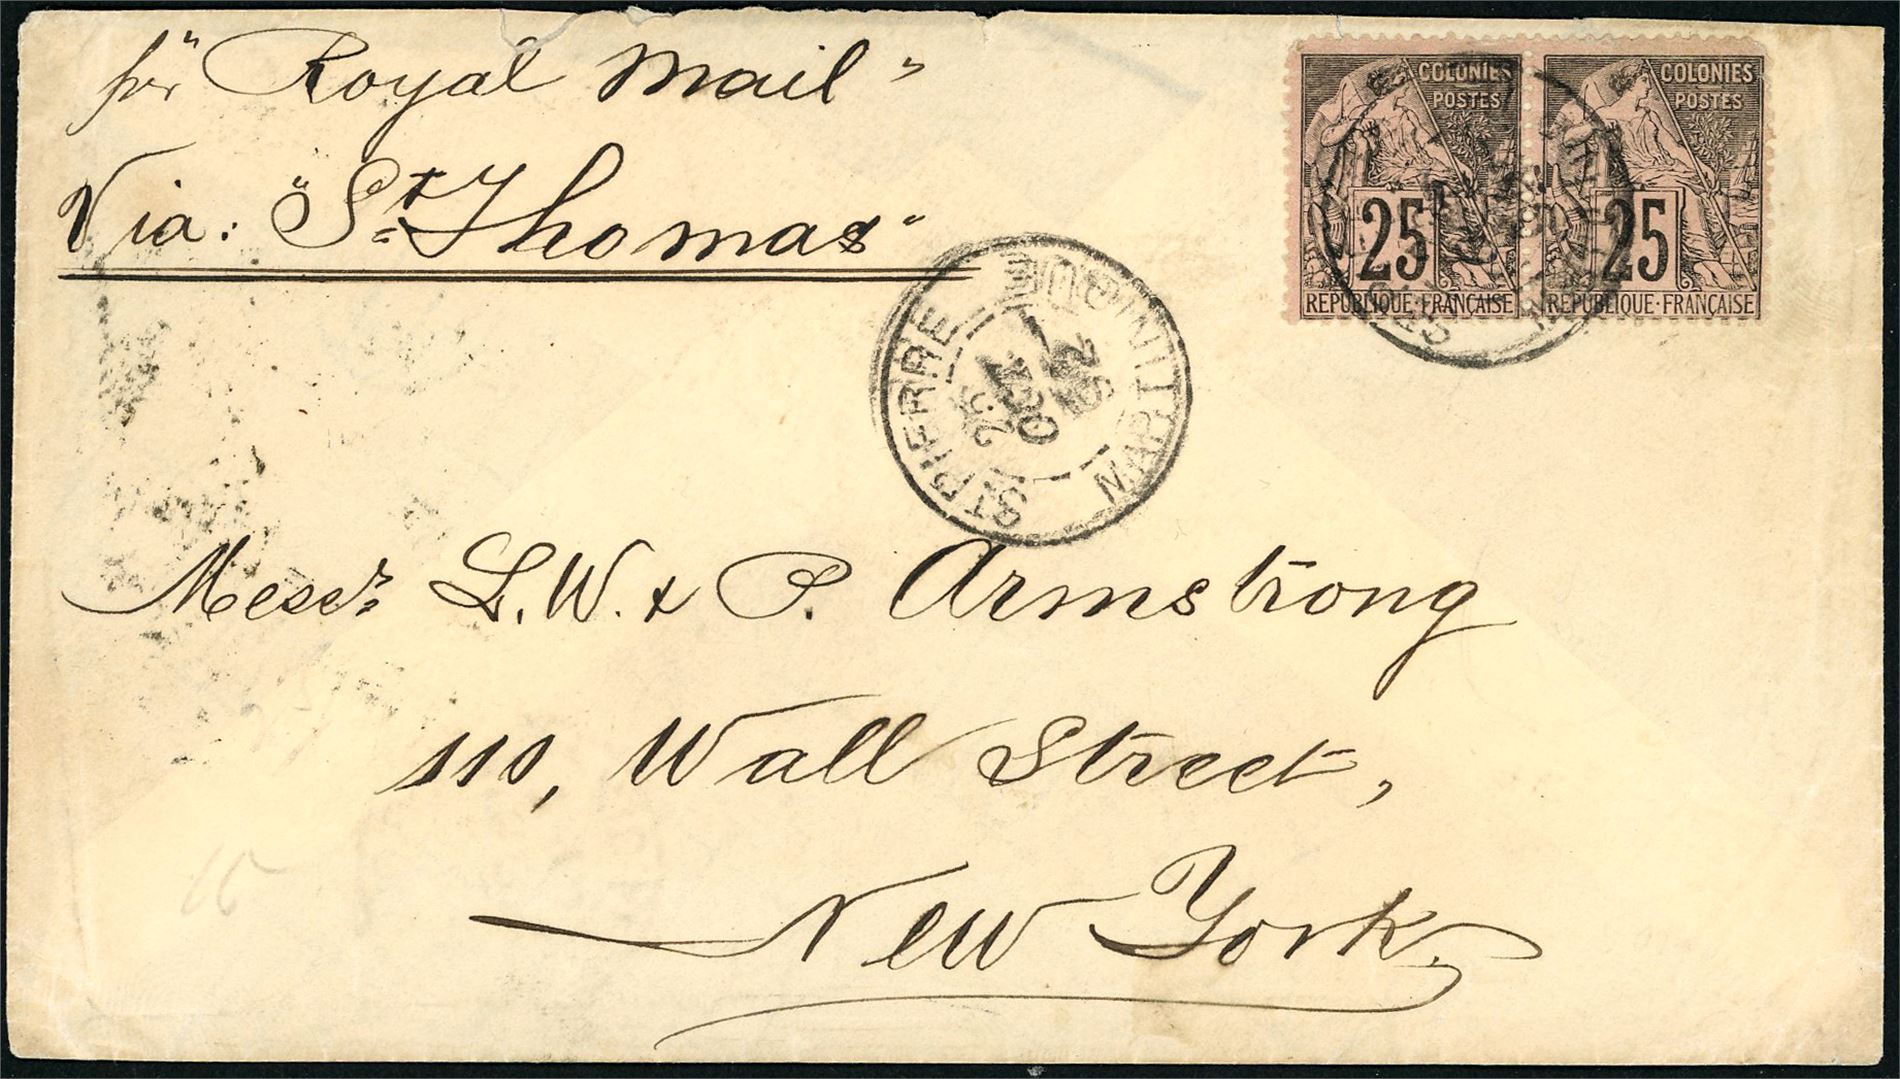 pr "Royal Mail"
Via: "St Thomas"
COLONIES
POSTES
25
REPUBLIQUE·FRANÇAISE
COLONIES
POSTES
25
REPUBLIQUE·FRANÇAISE
ST PIERRE
MARTINIQUE
Messrs L. W. & P. Armstrong
110, Wall Street,
New York.